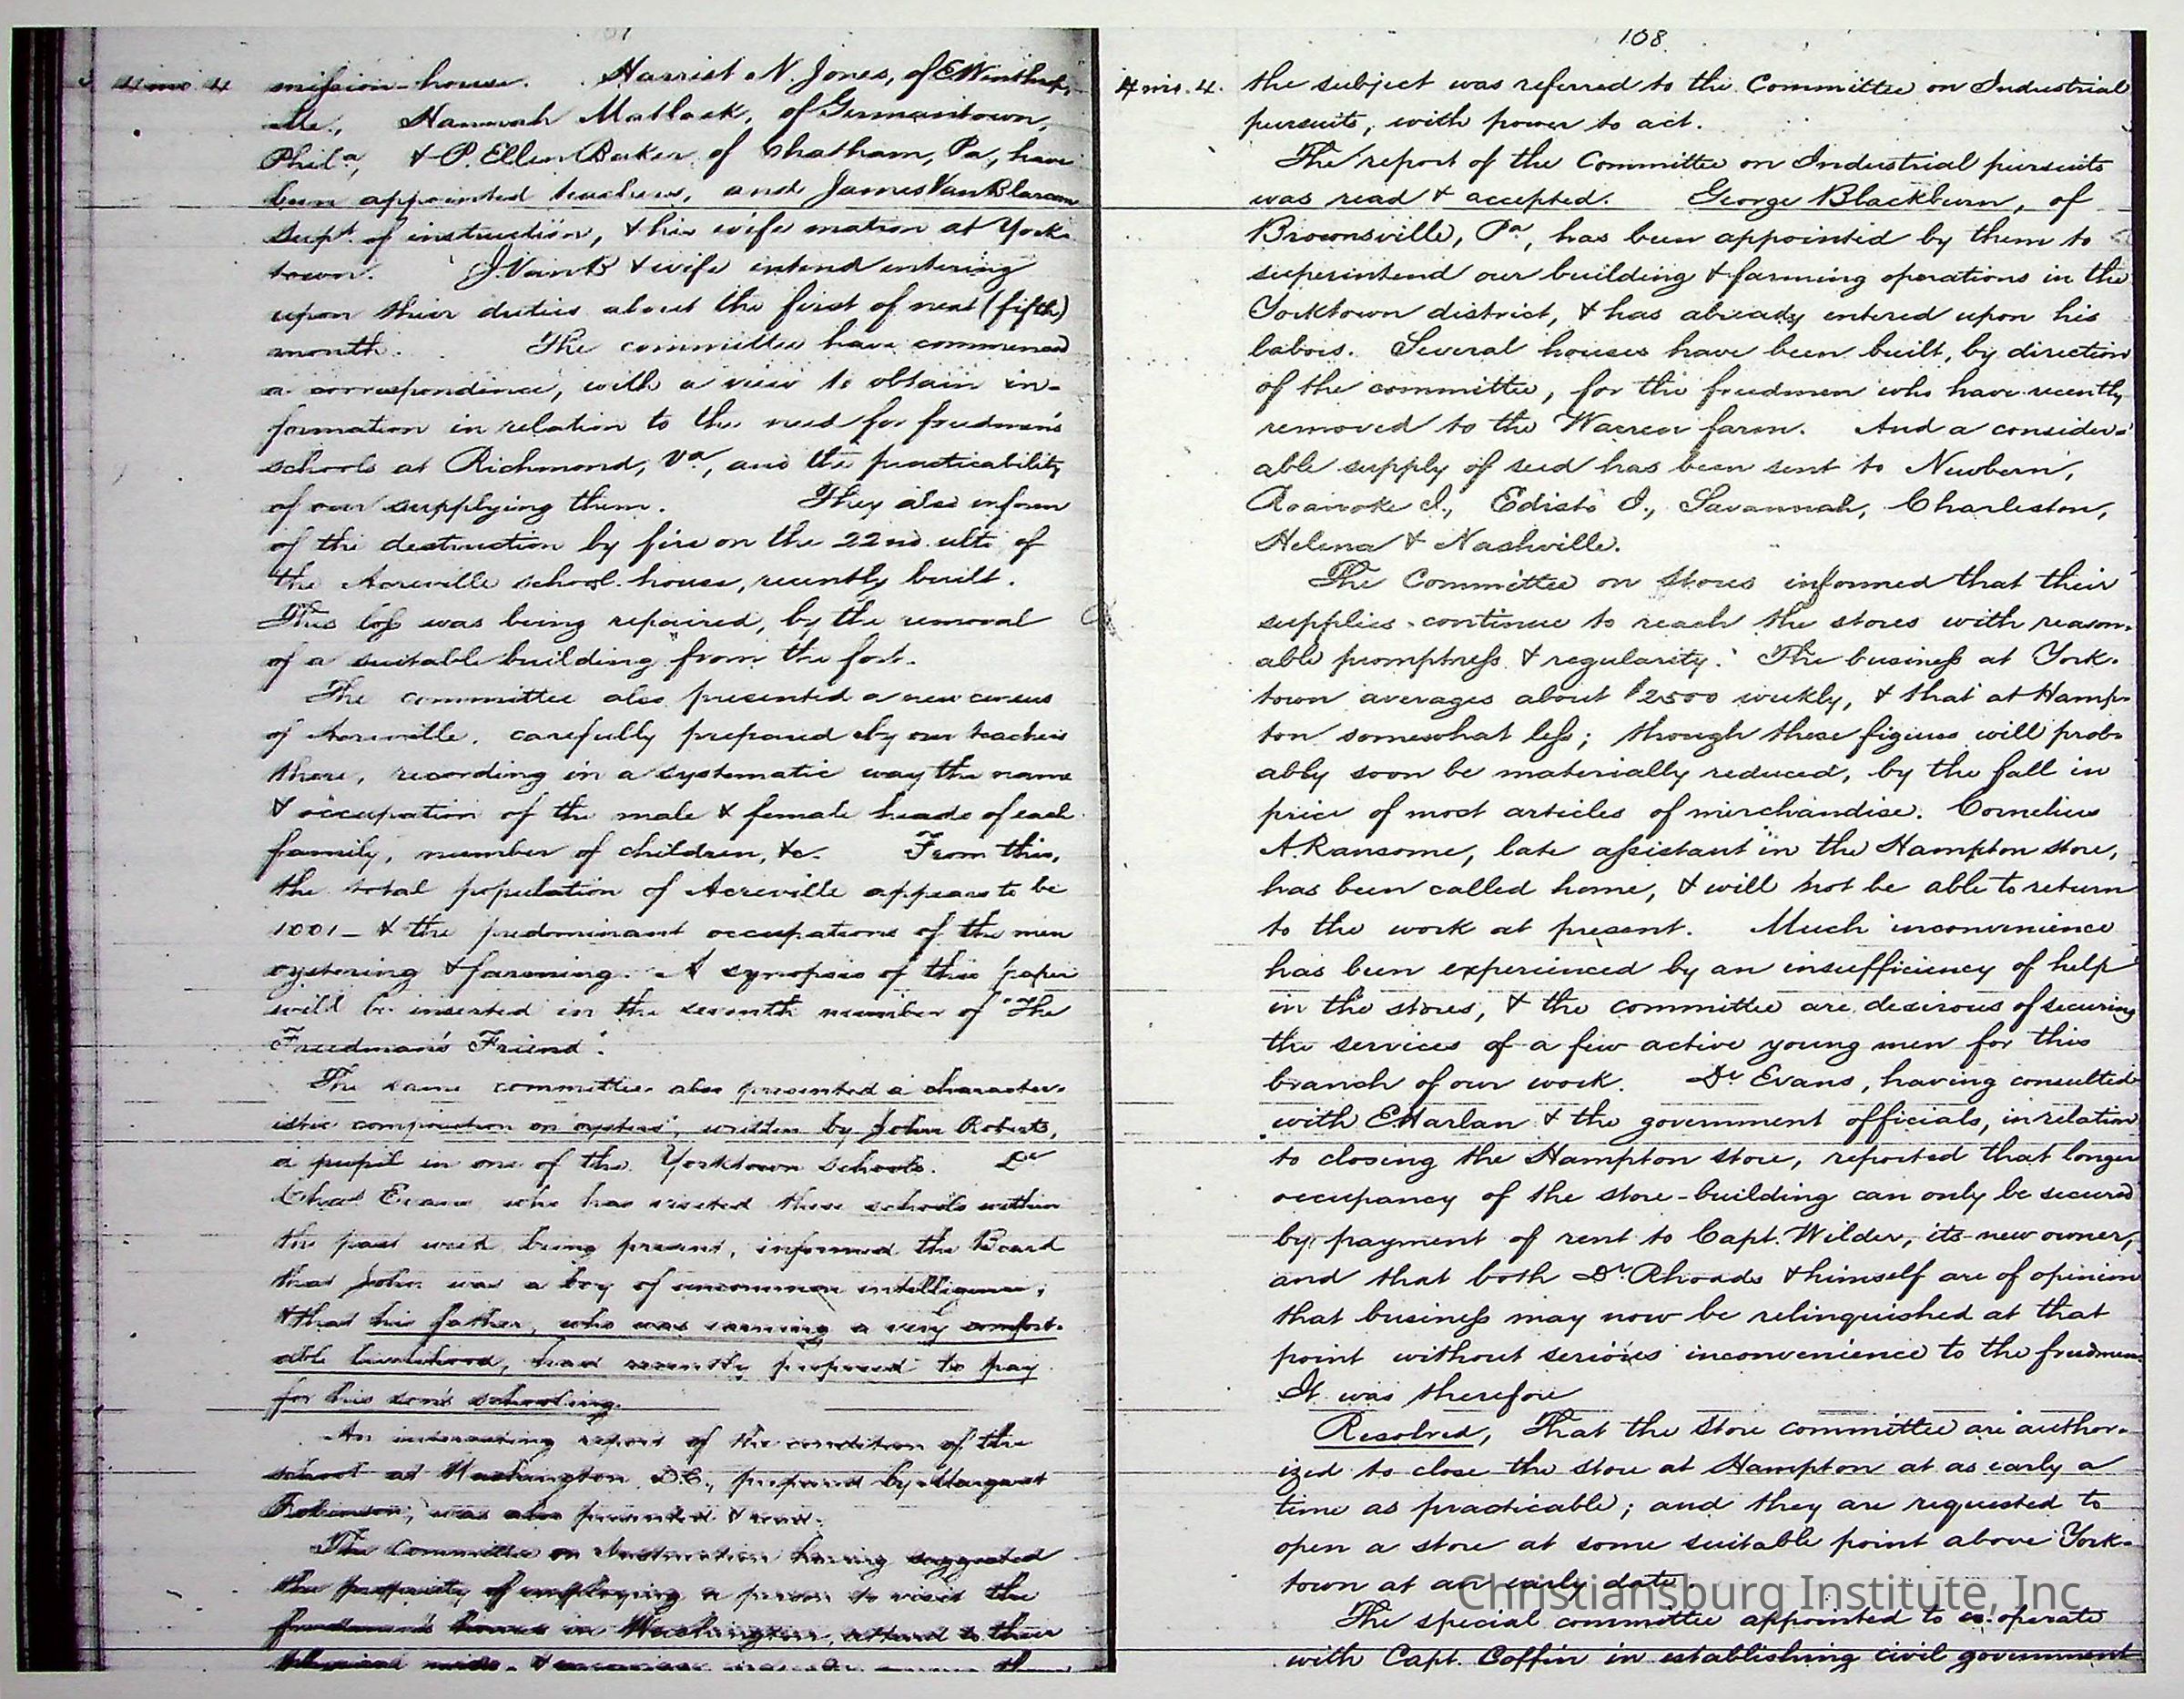 4 mo. 4
mission-house. Harriet N. Jones, of E Winthrop,
Me., Hannah Matlack, of Germantown,
Phila, & P. Ellen Baker of Chatham, Pa, have
been appointed teachers, and James VanBlarcom
Supt. of instruction, & his wife matron at York-
town. J. VanB & wife intend entering
upon their duties about the first of next (fifth)
month. The committee have commenced
a correspondence, with a view to obtain in-
formation in relation to the need for freedmen's
schools at Richmond, Va, and the practicability
of our supplying them. They also inform
of the destruction by fire on the 22nd. ulto of
the Acreville school-house, recently built.
This loss was being repaired, by the removal
of a suitable building from the fort.
The committee also presented a new census
of Acreville, carefully prepared by our teachers
there, recording in a systematic way the name
& occupation of the male & female heads of each
family, number of children, &c. From this,
the total population of Acreville appears to be
1001 - & the predominant occupations of the men
oystering & farming. A synopsis of this paper
will be inserted in the seventh number of "The
Freedman's Friend".
The same committee also presented a character-
istic composition on "oysters", written by John Roberts,
a pupil in one of the Yorktown schools. Dr
Chas Evans who has visited these schools within
the past week being present, informed the Board
that John was a boy of uncommon intelligence;
& that his father, who was earning a very comfort-
able livelihood, had recently proposed to pay
for his son's schooling.
An interesting report of the condition of the
school at Washington D.C., prepared by Margaret
Robinson, was also presented & read.
The Committee on Instruction having suggested
the propriety of employing a person to visit the
freedmen's homes in Washington, attend to their
physical
108
4 mo. 4.
the subject was referred to the Committee on Industrial
pursuits, with power to act.
The report of the Committee on Industrial pursuits
was read & accepted. George Blackburn, of
Brownsville, Pa, has been appointed by them to
superintend our building & farming operations in the
Yorktown district, & has already entered upon his
labors. Several houses have been built, by direction
of the committee, for the freedmen who have recently
removed to the Warren farm. And a consider-
able supply of seed has been sent to Newbern,
Roanoke I., Edisto I., Savannah, Charleston,
Helena & Nashville.
The Committee on Stores informed that their
supplies continue to reach the stores with reason-
able promptness & regularity. The business at York-
town averages about $2500 weekly, & that at Hamp-
ton somewhat less; though these figures will prob-
ably soon be materially reduced, by the fall in
price of most articles of merchandise. Cornelius
A. Ransome, late assistant in the Hampton store,
has been called home, & will not be able to return
to the work at present. Much inconvenience
has been experienced by an insufficiency of help
in the stores, & the committee are desirous of securing
the services of a few active young men for this
branch of our work. Dr Evans, having consulted
with E Harlan & the government officials, in relation
to closing the Hampton store, reported that longer
occupancy of the store-building can only be secured
by payment of rent to Capt. Wilder, its new owner,
and that both Dr. Rhoads & himself are of opinion
that business may now be relinquished at that
point without serious inconvenience to the freedmen.
It was therefore
Resolved, That the Store committee are author-
ized to close the store at Hampton at as early a
time as practicable; and they are requested to
open a store at some suitable point above York-
town at an early date.
Christiansburg Institute, Inc
The special committee appointed to co-operate
with Capt. Coffin in establishing civil government